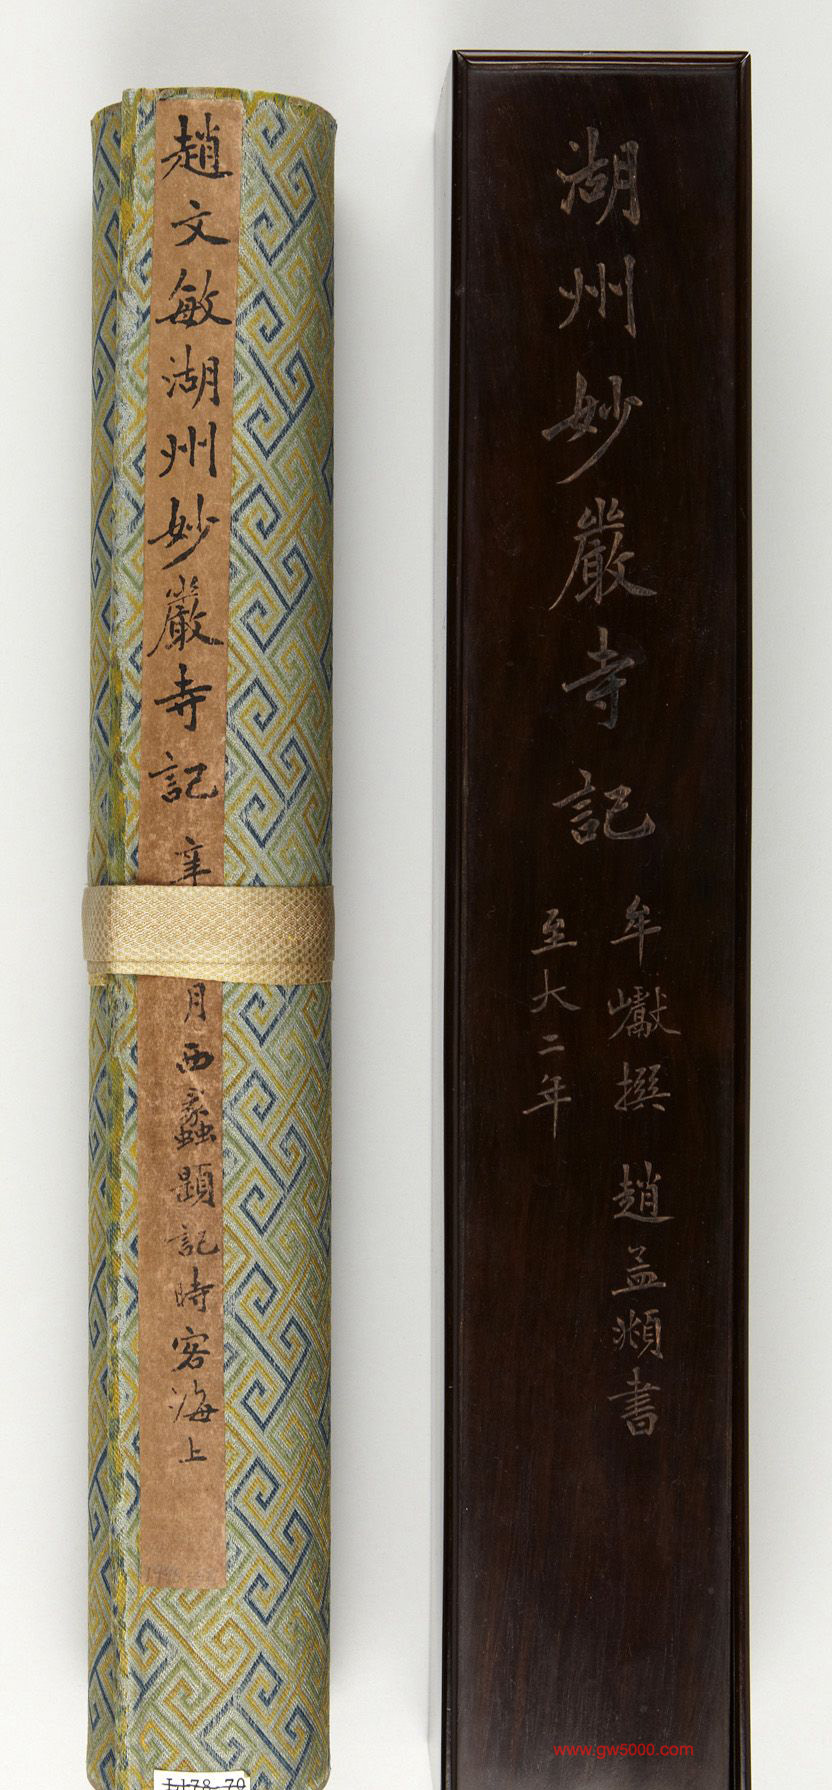 趙文敏湖州妙嚴寺記
辛
月西蠡題記時客海上
湖州妙嚴寺記
牟巘撰 趙孟頫書
至大二年
L.178.70
www.gw5000.com